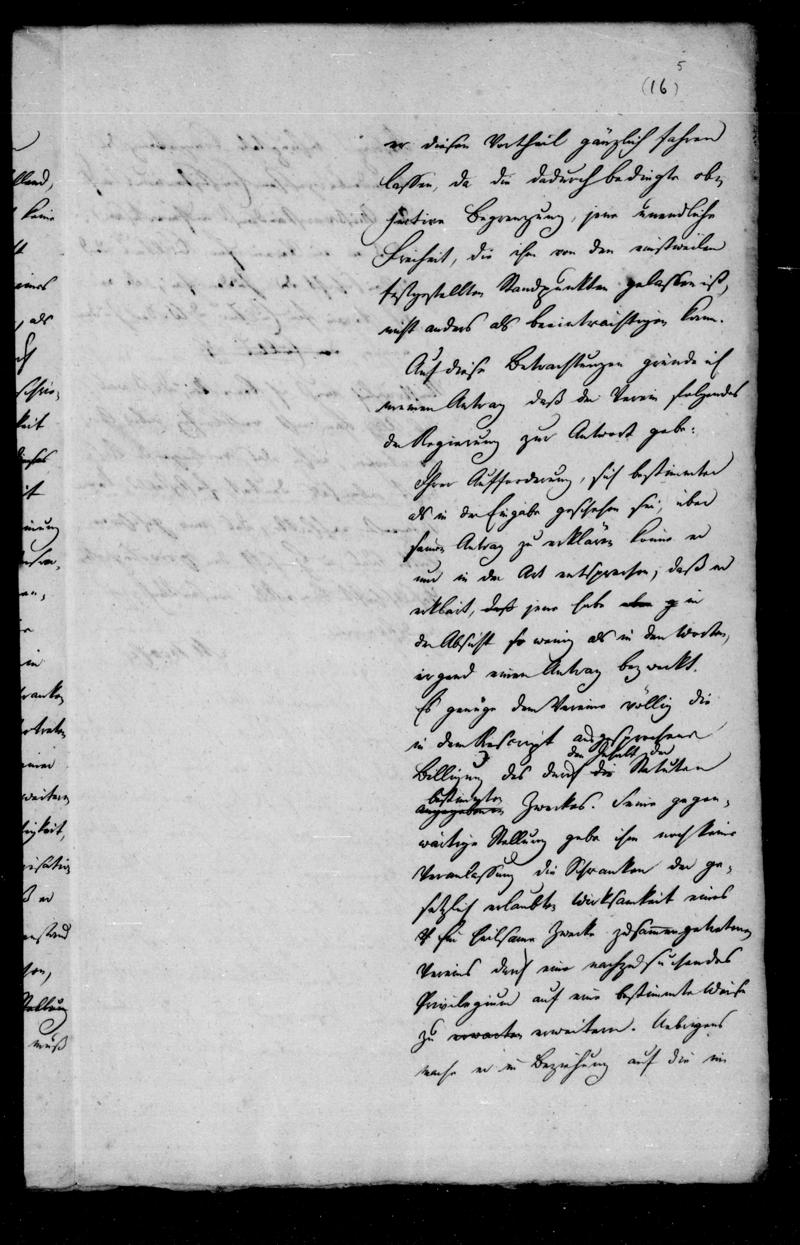 5
(16)
er diesen Vortheil gänzlich fahren
lassen, da die dadurch bedingte ob-
jective Begrenzung, jene unendliche
Freiheit, die ihm von den einstweilen
festgestellten Standpunkten gelassen ist,
nicht anders als beeinträchtigen kann.
Auf diese Betrachtungen gründe ich
meinen Antrag daß der Verein folgendes
der Regierung zur Antwort gebe:
Ihrer Aufforderung, sich bestimmter
als in der Eingabe geschehen sei, über
seinen Antrag zu erklären könne er
nur in der Art entsprechen, daß er
erklärt, daß jene habe in
der Absicht so wenig als in den Worten,
irgend einen Antrag bezweckt.
Es genüge dem Vereine völlig die
in dem Rescript ausgesprochene
den Inhalt der
Billigung des durch die Statuten
bestimmten
angegebenen Zweckes. Seine gegen-
wärtige Stellung gebe ihm noch keine
Veranlassung die Schranken der ge-
setzlich erlaubten Wirksamkeit eines
für heilsame Zwecke zusammengetretenen
Vereins durch eine nachzusuchendes
Privilegium auf eine bestimmte Weise
zu erwarten erweitern. Uebrigens
er in Beziehung auf die im
lland,
keine
eines
, als
keit
dieses
ranken
einer
weitern
igkeit,
ß er
enstand
Stellung
muß